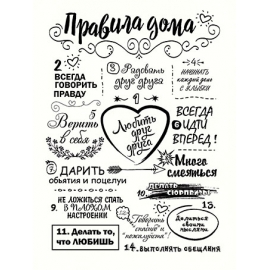 Правила дома
1
2
ВСЕГДА
ГОВОРИТЬ
ПРАВДУ
3 Радовать
друг друга
4
НАЧИНАТЬ
КАЖДЫЙ ДЕНЬ
С УЛЫБКИ
5 Верить
в себя
Любить
друг
друга
ВСЕГДА
6 ИДТИ
ВПЕРЕД!
7 ДАРИТЬ
объятия и поцелуи
8 Много
смеяться
9. НЕ ЛОЖИТЬСЯ СПАТЬ
В ПЛОХОМ
НАСТРОЕНИИ
10 ДЕЛАТЬ
СЮРПРИЗЫ
11. Делать то,
что ЛЮБИШЬ
12. Говорить
"спасибо" и
"пожалуйста"
13.
Делиться
своими
мыслями
14. ВЫПОЛНЯТЬ ОБЕЩАНИЯ